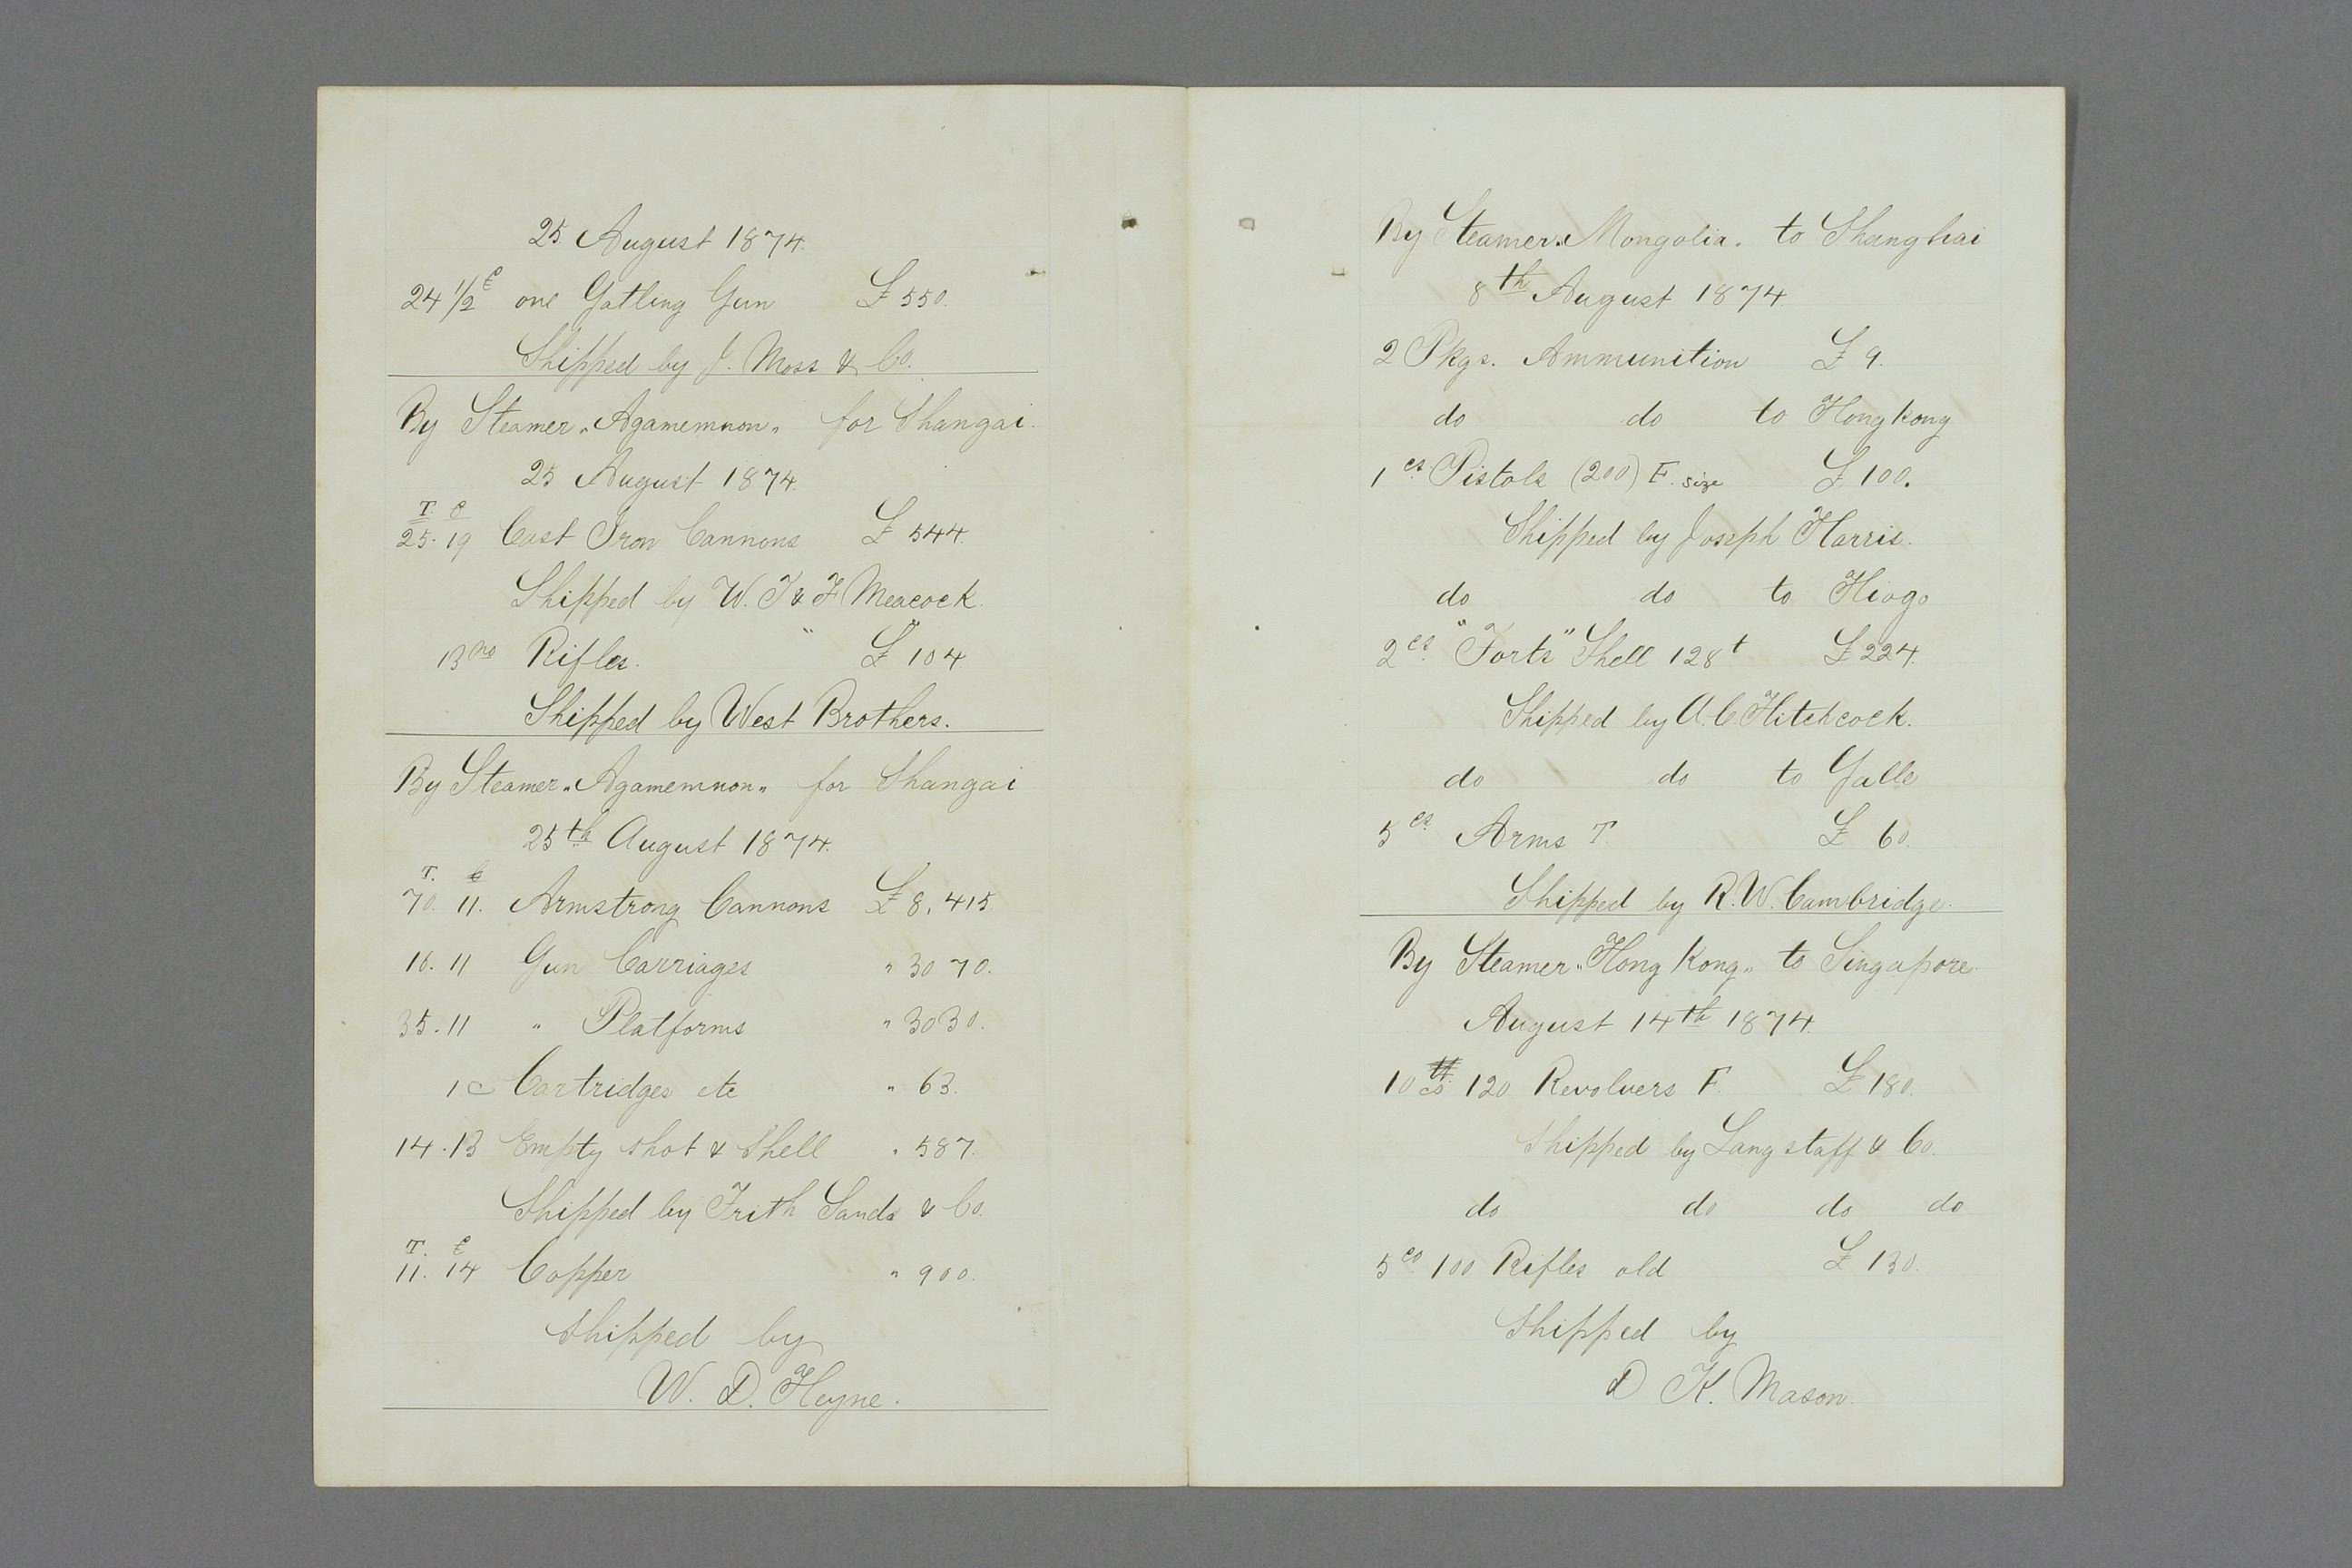 25. August 1874.
24 1/2 c one Gatling Gun £ 550.
Shipped by J. Moss & Co.
By Steamer „Agamemnon„ for Shangai.
25 August 1874.
T. C
25. 19 Cast Iron Cannons £ 544.
Shipped by W. T & F Meacock.
13 no Rifles. " £ 104
Shipped by West Brothers.
By Steamer „Agamemnon„ for Shangai
25th August 1874.
T. C
70. 11. Armstrong Cannons £ 8,415.
16. 11 Gun Carriages " 3070.
35. 11 " Platforms " 3030.
1 c Cartridges etc " 63.
14. 13 Empty shot & Shell " 587.
Shipped by Frith Sands & Co.
T. C
11. 14 Copper " 900.
Shipped by
W. D. Heyne.
By Steamer „Mongolia„ to Shanghai
8th August 1874.
2 Pkgs. Ammunition £ 9.
do do to Hong Kong
1 cs. Pistols (200) F. size £ 100.
Shipped by Joseph Harris.
do do to Hiogo
2 cs. "Forts" Shell 128 t £ 224.
Shipped by A. C. Hitchcock.
do do to Galle
5 cs. Arms T. £ 60.
Shipped by R. W. Cambridge.
By Steamer „Hong Kong„ to Singapore.
August 14th 1874.
10 cs. 120 Revolvers F. £ 180.
Shipped by Langstaff & Co.
do do do do
5 cs. 100 Rifles old £ 130.
Shipped by
D K. Mason.